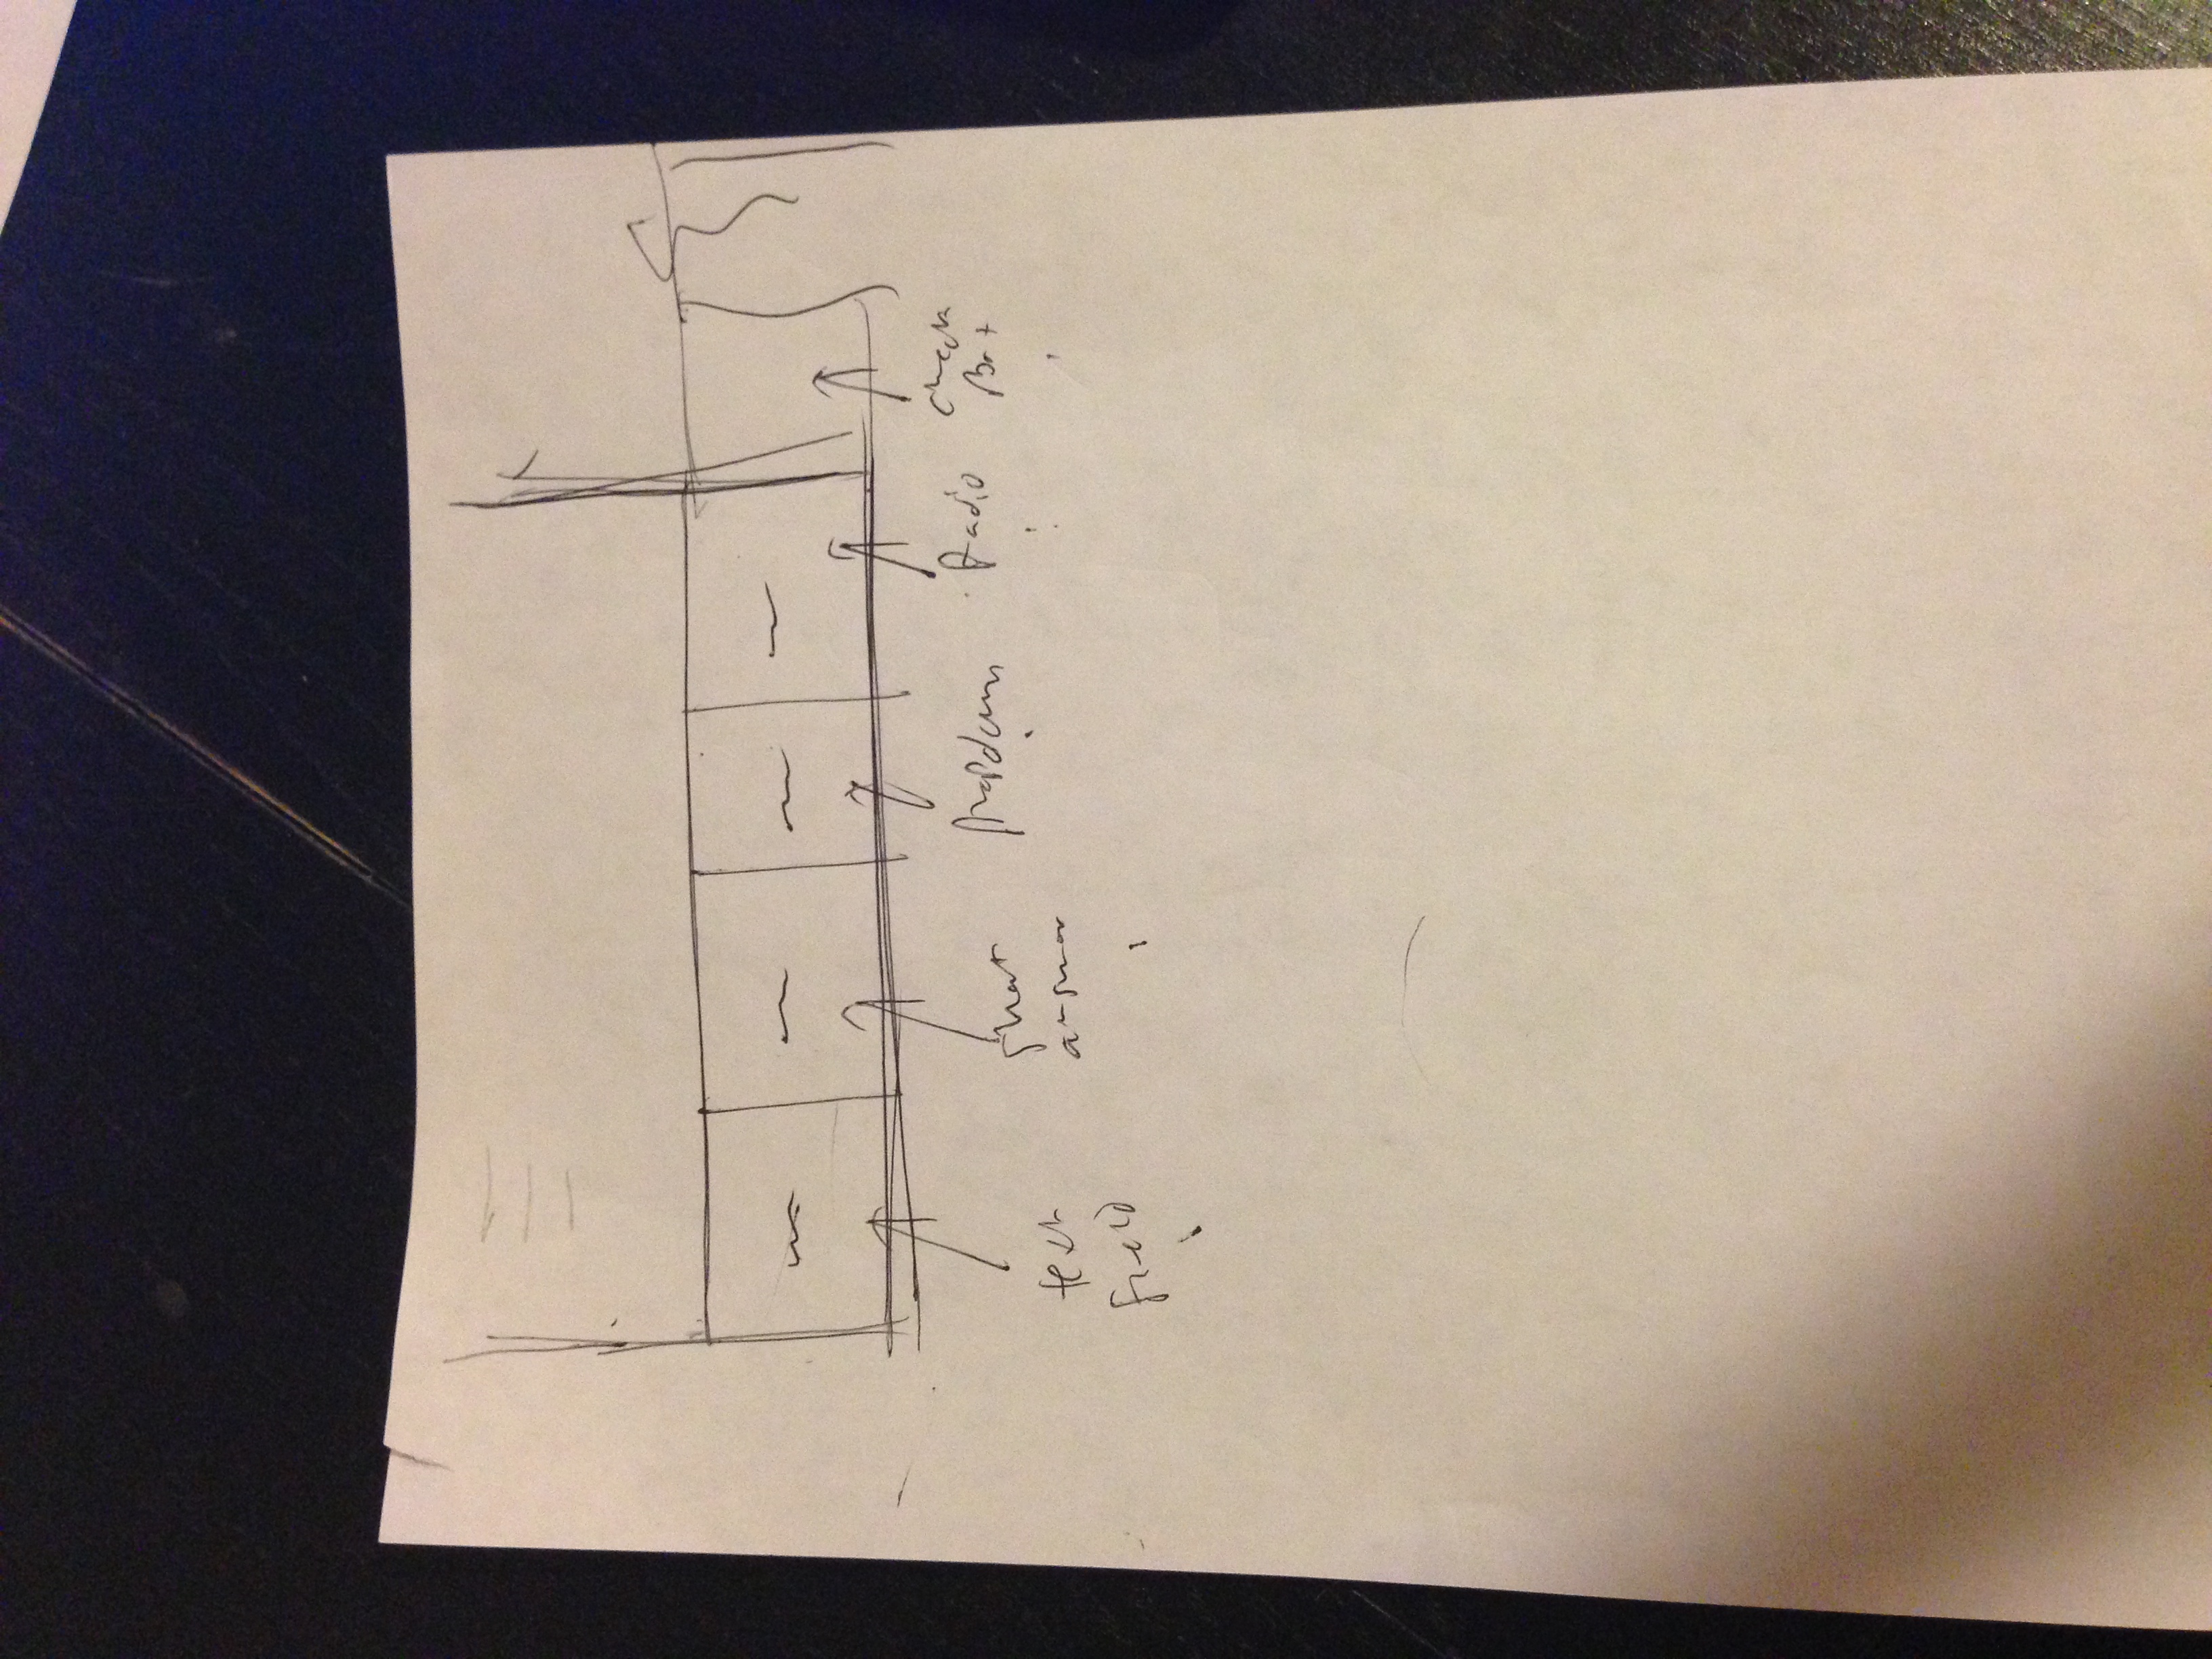 text
field
short
answer
dropdown
Radio
check
Box